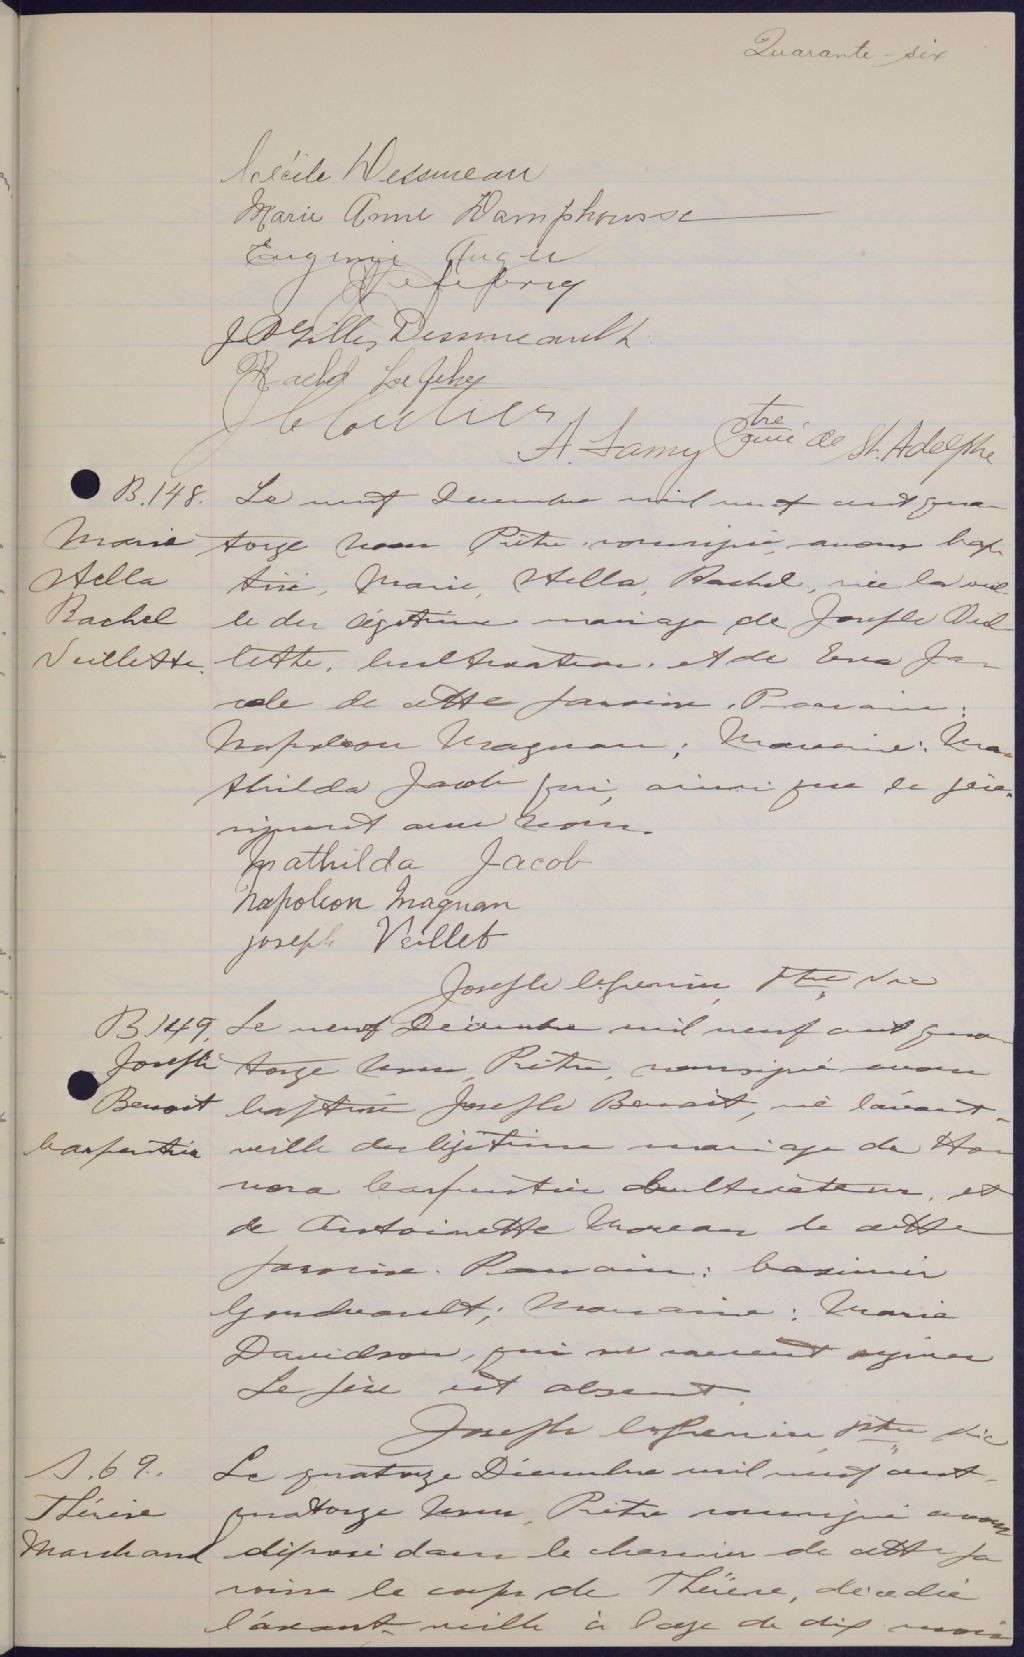 Quarante-six
Cécile Dessureau
Marie Anne Damphousse
Eugenie Auger
Dessureault
Rachel
J C Cloutier
A. Lamy Ptre curé de St. Adelphe
B.148. Le neuf Décembre mil neuf cent qua-
Marie torze nous Prêtre soussigné avons bap-
Stella tisé, Marie, Stella, Rachel, née la veil-
Rachel le du légitime mariage de Joseph Veil-
Veillette. lette, cultivateur, et de Eva Ja-
cob de cette paroisse. Parrain:
Napoléon Magnan; Marraine: Ma-
thilda Jacob qui, ainsi que le père,
signent avec nous.
Mathilda Jacob
Napoleon Magnan
joseph Veillet
Joseph Ptre Vic
B.149. Le neuf Décembre mil neuf cent qua-
Joseph torze nous, Prêtre, soussigné avons
Benoit baptisé Joseph Benoit, né l'avant-
Carpentier veille du légitime mariage de
Carpentier Cultivateur, et
de Antoinette Moreau de cette
paroisse. Parrain: Casimir
Goudreault; Marraine: Marie
Davidson, qui ne savent signer
Le père est absent.
Joseph ptre vic
S.69. Le quatorze Décembre mil neuf cent-
Thérèse quatorze nous, Prêtre soussigné avons
Marchand déposé dans le charnier de cette pa
roisse le corps de Thérèse, décédée
l'avant-veille à l'age de dix mois